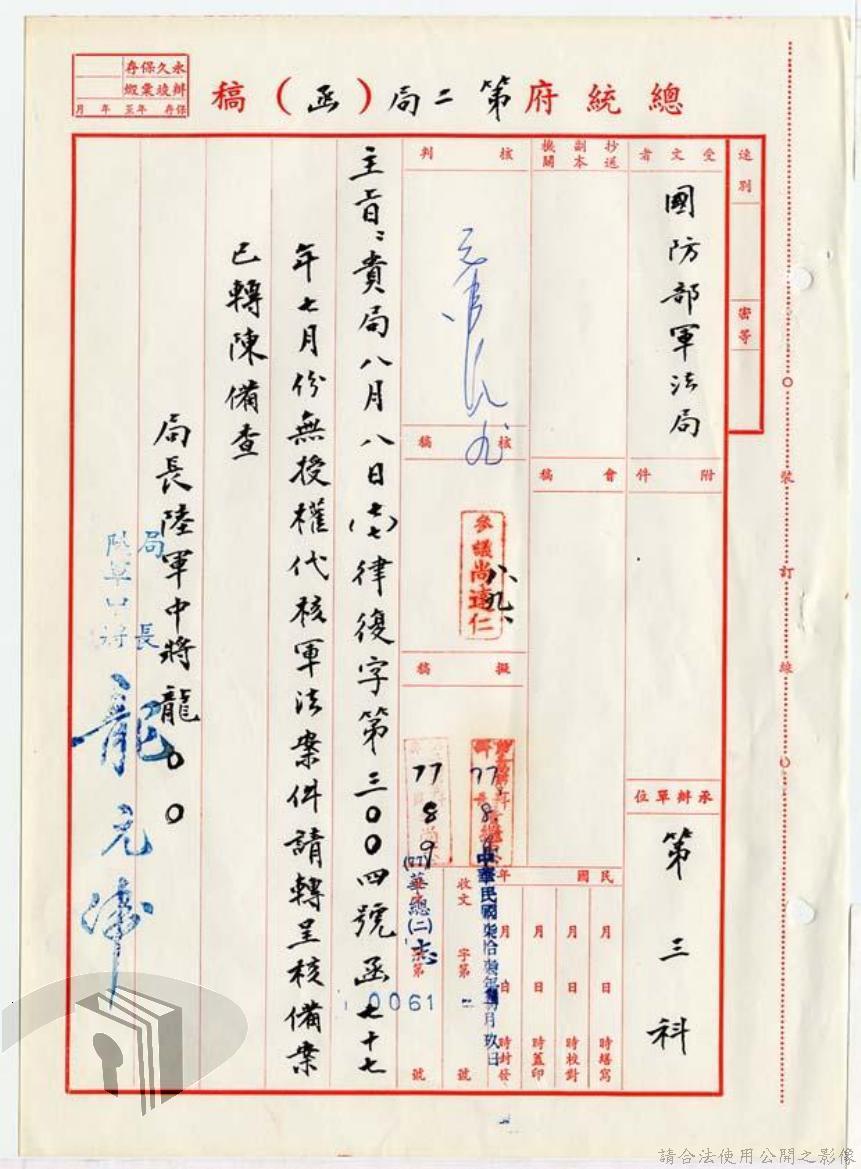 總統府第二局(函)稿
永久保存
辦竣彙繳
保存 年至 年 月
速別
密等
受文者
國防部軍法局
附件
承辦單位
第三科
抄送副本機關
會稿
核判
核稿
參議尚達仁
八、九、
擬稿
77 8 9
77 8 9
民國 年
月 日 時繕寫
月 日 時校對
月 日 時蓋印
月 日 時封發
中華民國柒拾柒年捌月玖日
收文 字第 號
(77)華總(二)志 第 0061 號
主旨:貴局八月八日(七七)律復字第三〇〇四號函七十七
年七月份無授權代核軍法案件請轉呈核備案
已轉陳備查
局長陸軍中將龍〇〇
局長
陸軍中將
龍元
裝
訂
線
請合法使用公開之影像